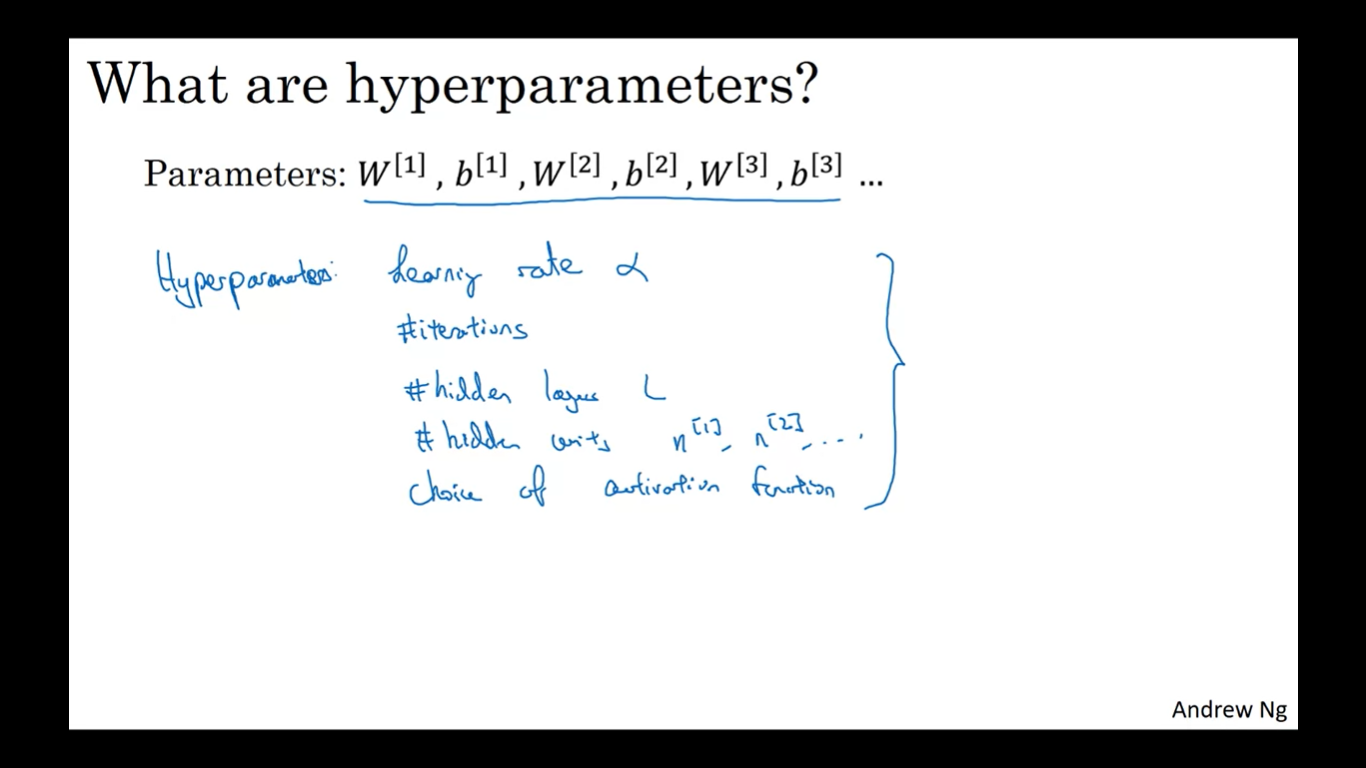 What are hyperparameters?
Parameters: W[1] , b[1] , W[2] , b[2] , W[3] , b[3] ...
Hyperparameters: Learning rate α
#iterations
#hidden layers L
#hidden units n[1], n[2], ....
Choice of activation function
Andrew Ng